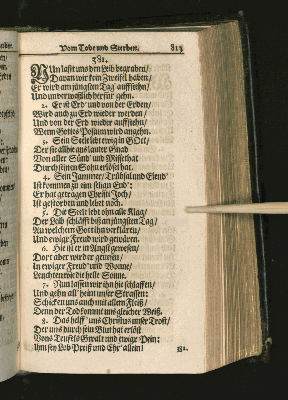 Vom Tode und Sterben. 813
381.
NUn laßt uns den Leib begraben/
Daran wir kein Zweifel haben/
Er wird am jüngsten Tag aufstehn/
Und unverweßlich herfür gehn.
2. Er ist Erd' und von der Erden/
Wird auch zu Erd wieder werden/
Und von der Erd wieder aufstehn/
Wenn Gottes Posaun wird angehn.
3. Sein Seele lebt ewig in GOtt/
Der sie allhie aus lauter Gnad
Von aller Sünd' und Missethat
Durch seinen Sohn erlöset hat.
4. Sein Jammer/ Trübsal und Elend
Ist kommen zu ein'm seligen End':
Er hat getragen Christi Joch/
Ist gestorben und lebet noch.
5. Die Seele lebt ohn alle Klag/
Der Leib schläfft biß am jüngsten Tag/
An welchem Gott ihn verklären/
Und ewiger Freud wird gewären.
6. Hie ist er in Angst gewesen/
Dort aber wird er genesen/
In ewiger Freud' und Wonne/
Leuchten wie die helle Sonne.
7. Nun lassen wir ihn hie schlaffen/
Und gehn all' heim unser Strassen:
Schicken uns auch mit allem Fleiß/
Denn der Tod kommt uns gleicher Weiß.
8. Das helff' uns Christus unser Trost/
Der uns durch sein Blut hat erlöst
Vons Teufels Gwalt und ewiger Pein:
Ihm sey Lob Preiß und Ehr' allein!
382.